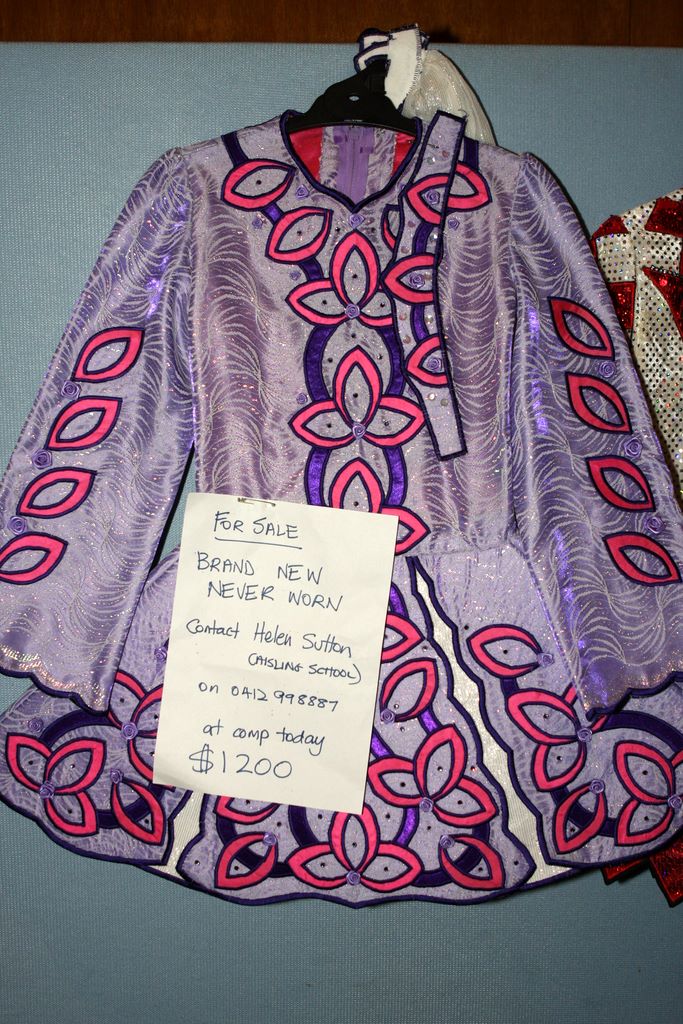 FOR SALE
BRAND NEW
NEVER WORN
Contact Helen Sutton
(AISLING SCHOOL)
on 0412 998887
at comp today
$1200